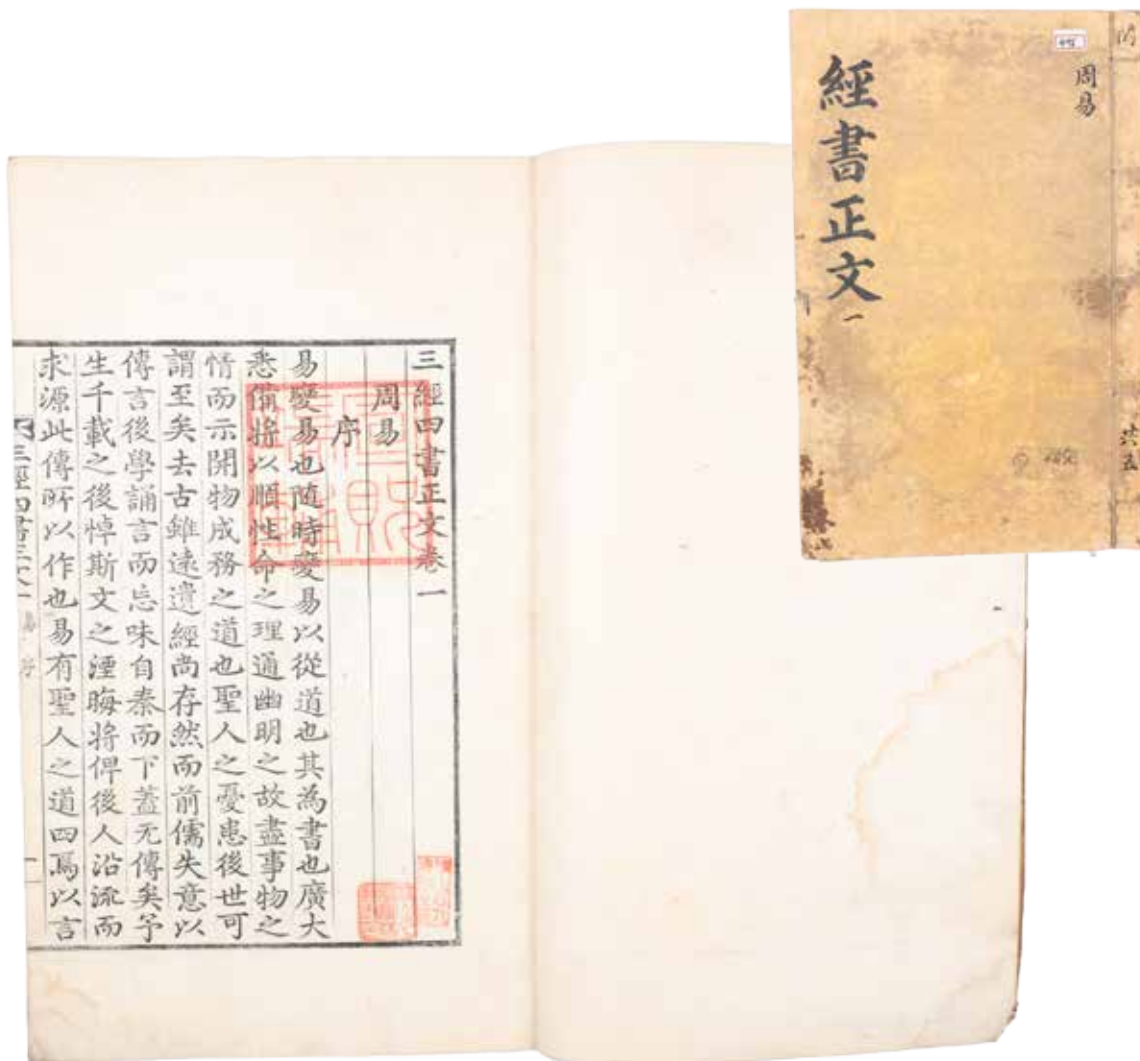 經書正文一
周易
三經四書正文卷一
周易
序
易變易也隨時變易以從道也其為書也廣大
悉備將以順性命之理通幽明之故盡事物之
情而示開物成務之道也聖人之憂患後世可
謂至矣去古雖遠遺經尚存然而前儒失意以
傳言後學誦言而忘味自秦而下蓋无傳矣予
生千載之後悼斯文之湮晦將俾後人沿流而
求源此傳所以作也易有聖人之道四焉以言